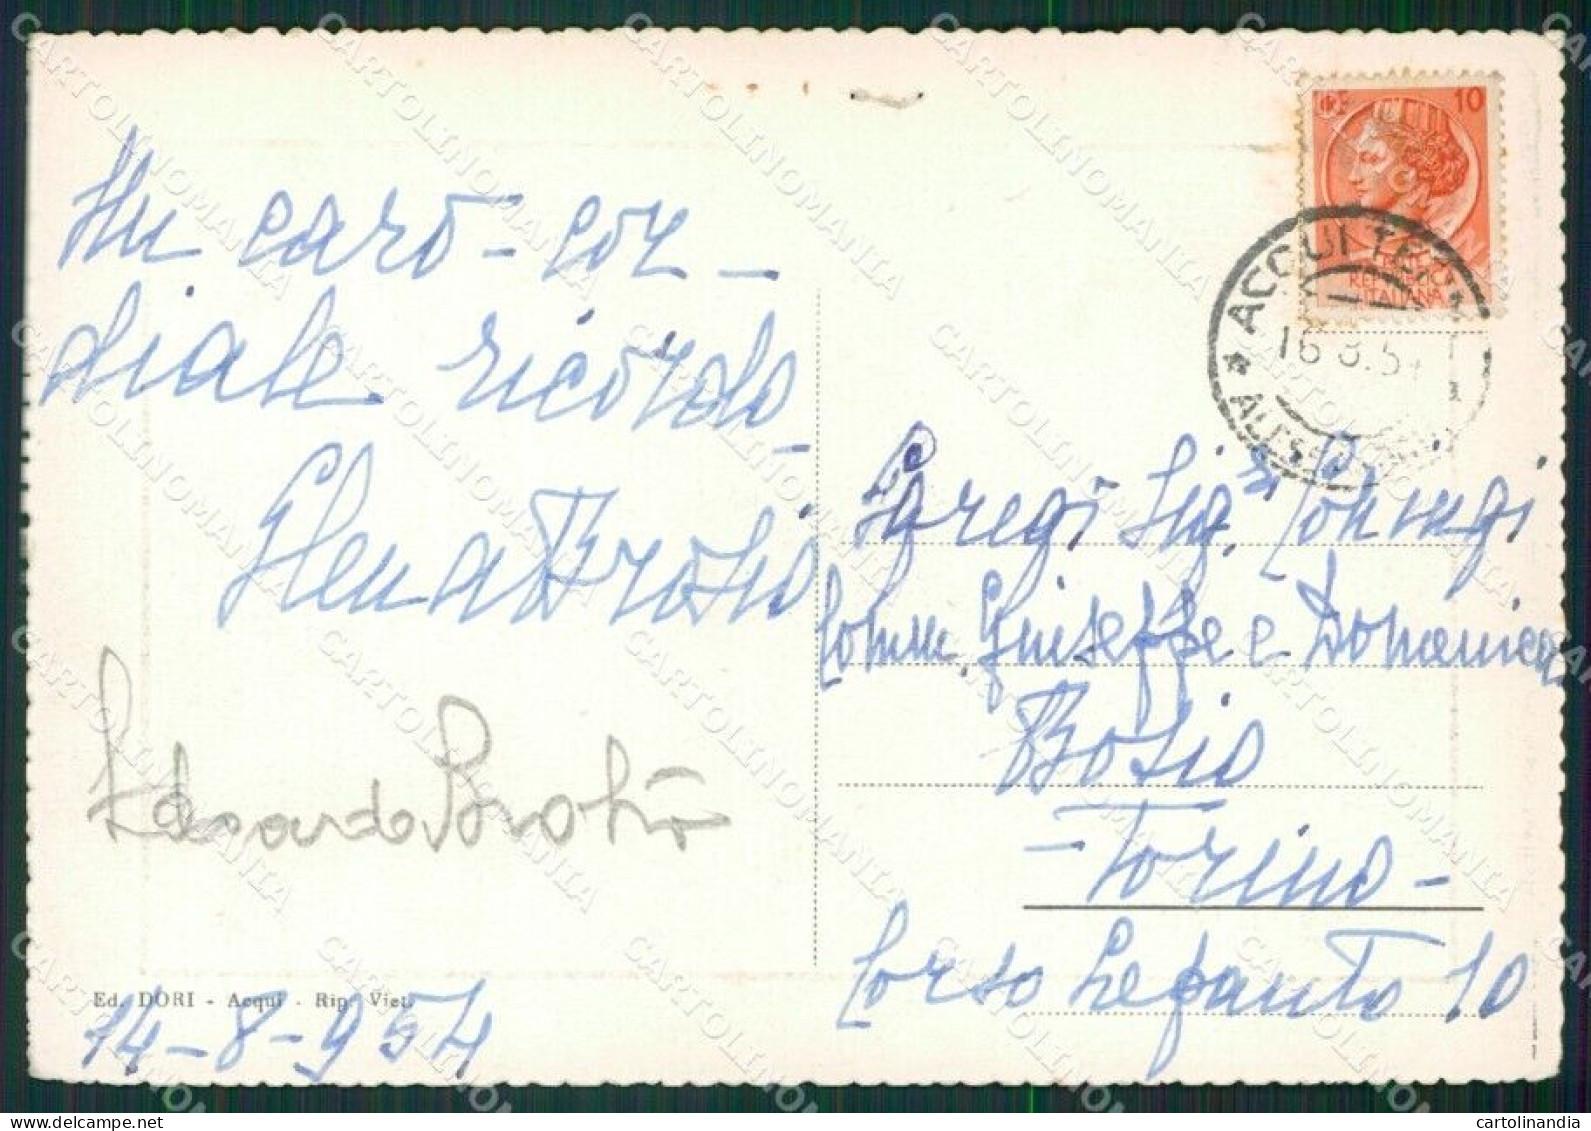 Un caro-cor-
diale ricordo
Elena Bosio
Ed. DORI - Acqui - Rip. Viet.
14-8-954
10
REPUBBLICA
ITALIANA
ACQUI TERME
16.8.54
ALESSANDRIA
Egregi Sig.ri Coniugi
Comm. Giuseppe e Domenica
Bosio
-Torino-
Corso Lepanto 10
CARTOLINOMANIA
cartolinandia